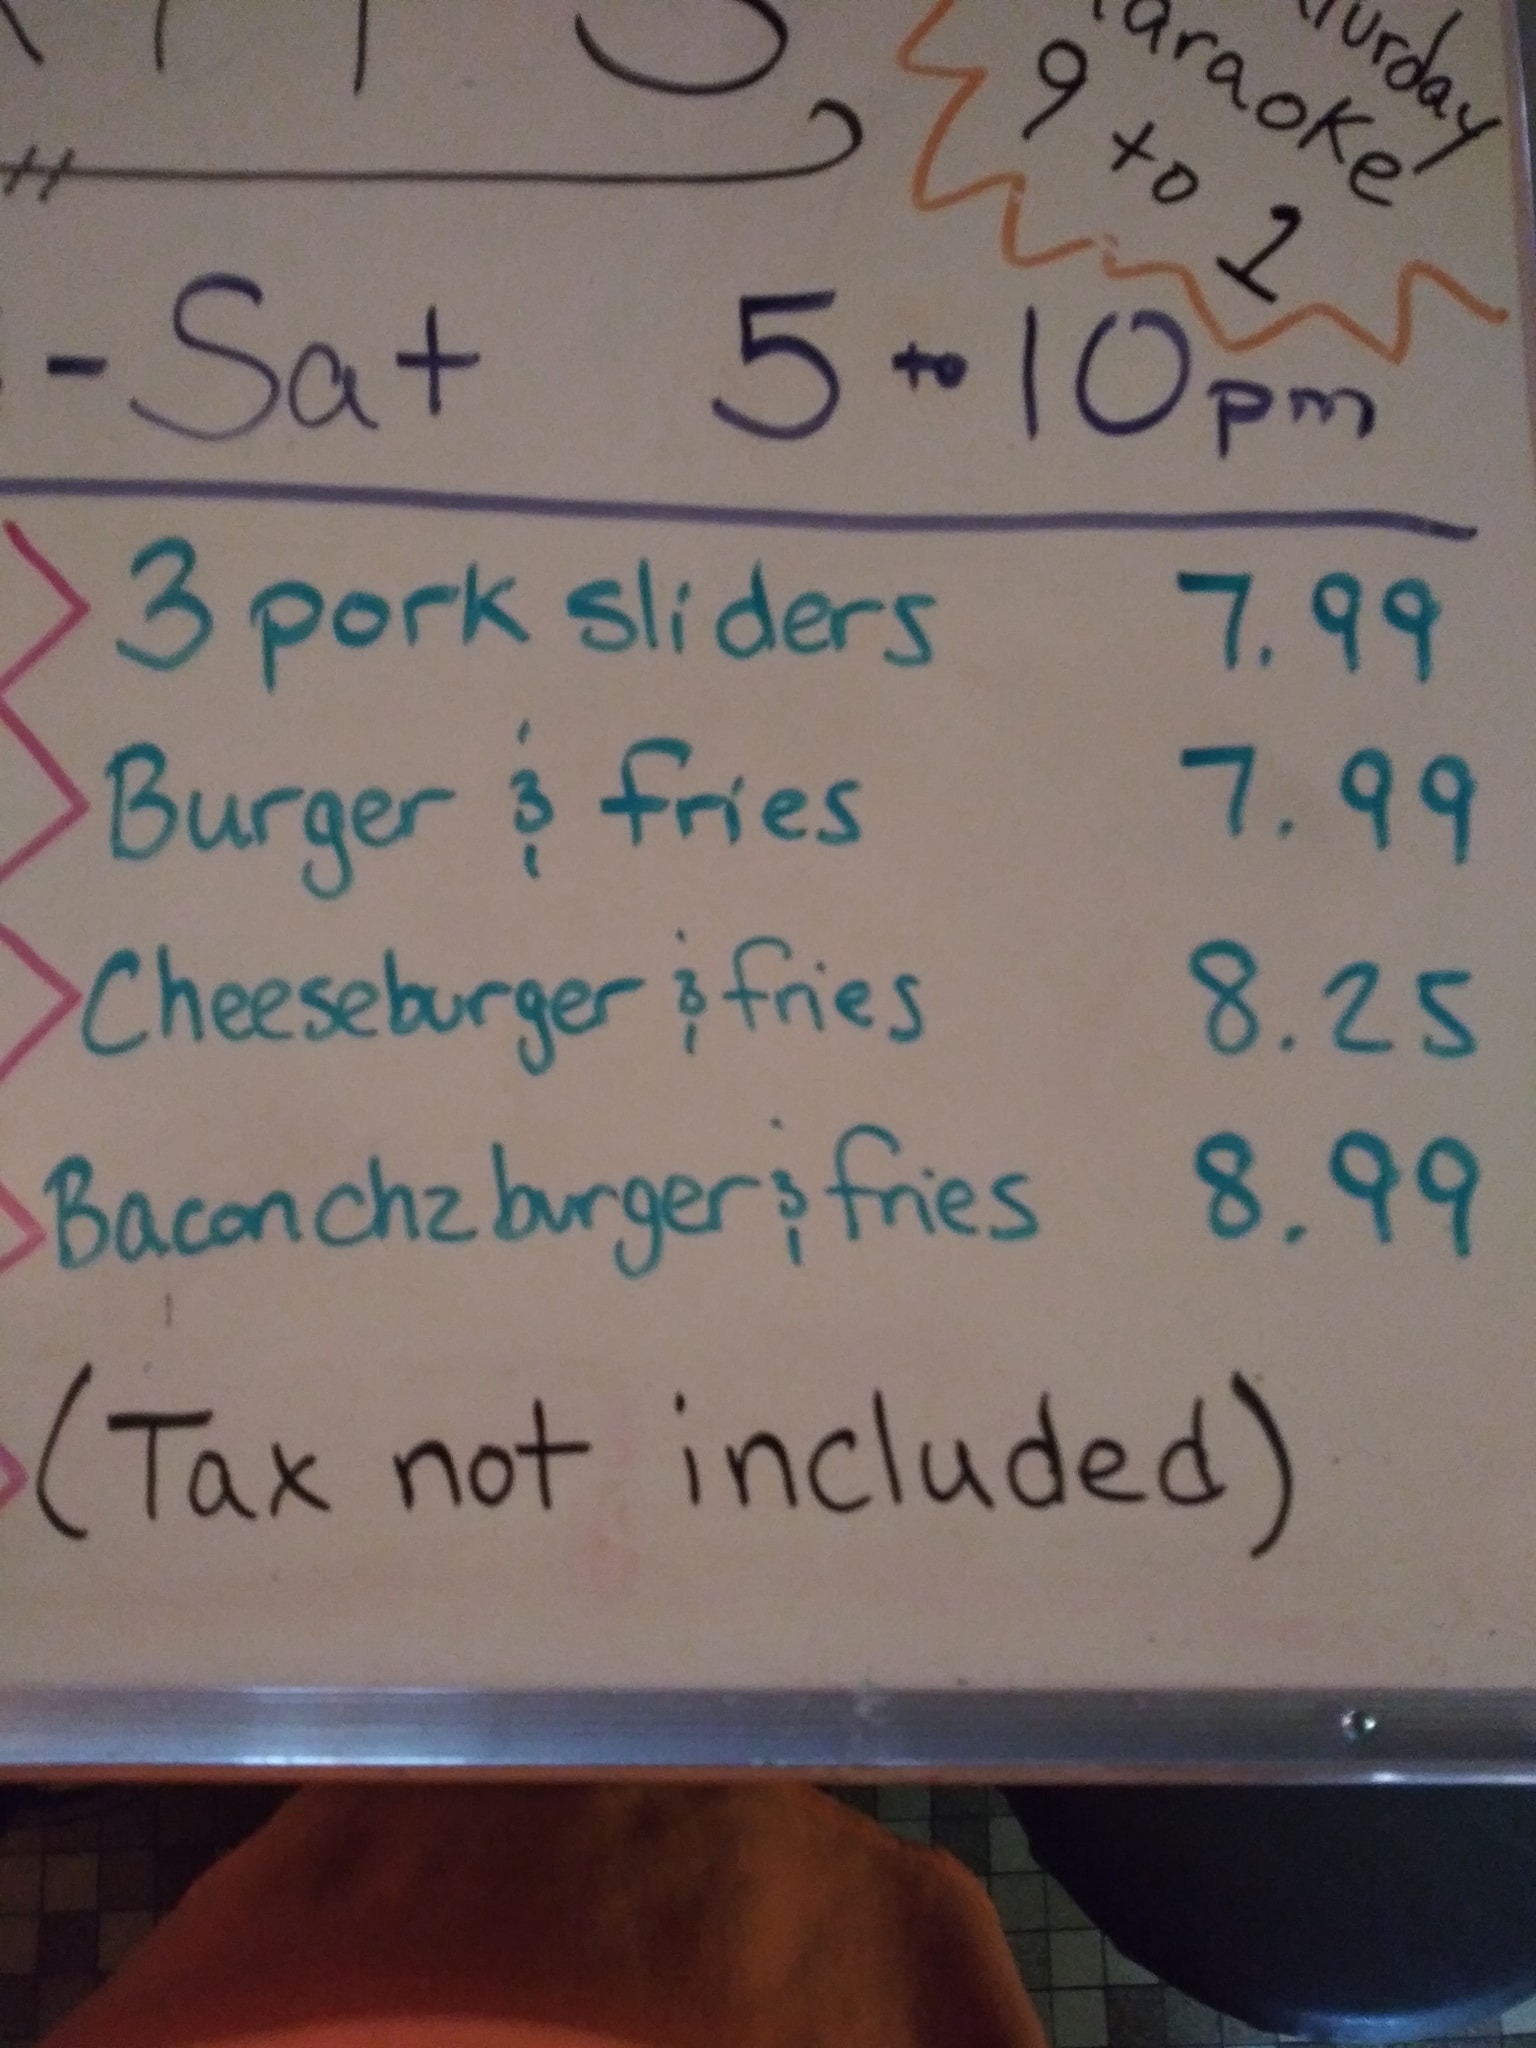 Saturday
Karaoke
9 to 1
- Sat 5 to 10pm
3 pork sliders 7.99
Burger & fries 7.99
Cheeseburger & fries 8.25
Bacon chz burger & fries 8.99
(Tax not included)